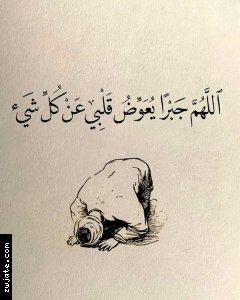 اللَّهُمَّ جَبْرًا يُعَوِّضُ قَلْبِي عَنْ كُلِّ شَيْء
zwjate.com